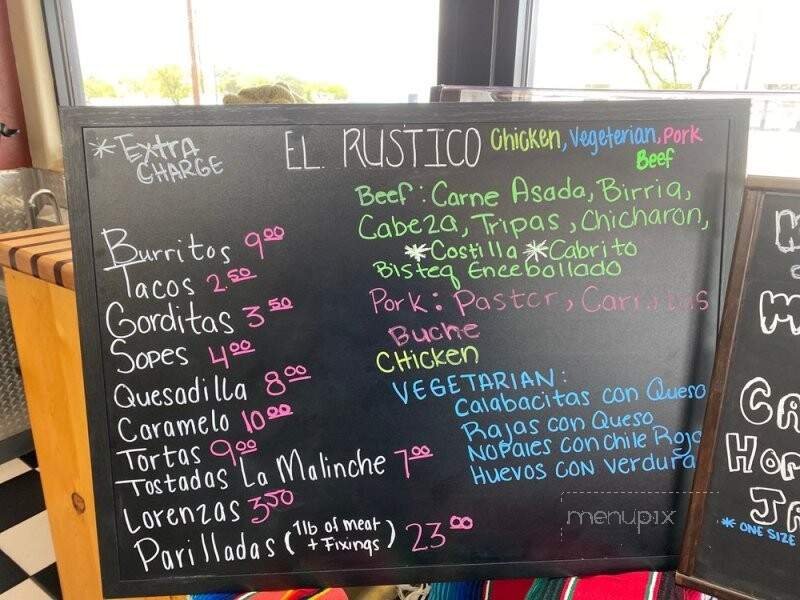 * Extra CHARGE
EL RUSTICO
Chicken, Vegeterian, Pork
Beef
Burritos 9.00
Tacos 2.50
Gorditas 3.50
Sopes 4.00
Quesadilla 8.00
Caramelo 10.00
Tortas 9.00
Tostadas La Malinche 7.00
Lorenzas 3.50
Parilladas (1lb of meat + Fixings) 23.00
Beef: Carne Asada, Birria,
Cabeza, Tripas, Chicharon,
*Costilla *Cabrito
Bisteq Encebollado
Pork: Pastor,
Buche
CHICKEN
VEGETARIAN:
Calabacitas con Queso
Rajas con Queso
Nopales con Chile Rojo
Huevos con verdura
menupix
* ONE SIZE